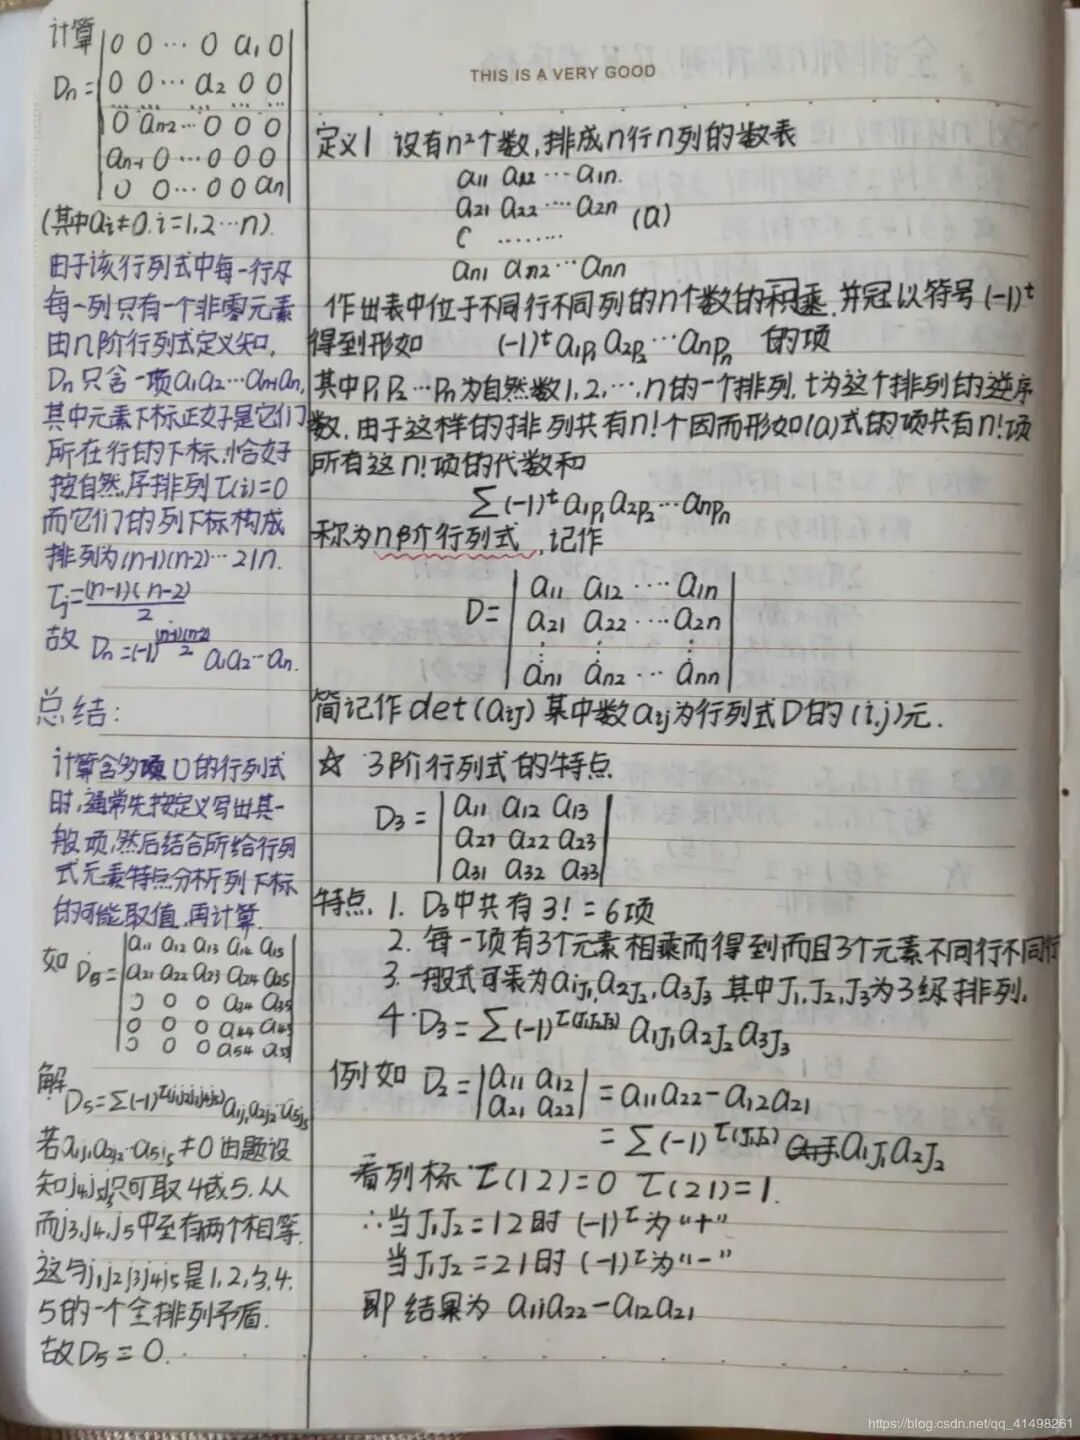 计算
Dn = | 0 0 ⋯ 0 a₁ 0 |
| 0 0 ⋯ a₂ 0 0 |
⋯ ⋯ ⋯ ⋯ ⋯
| 0 an-2 ⋯ 0 0 0 |
| an-1 0 ⋯ 0 0 0 |
| 0 0 ⋯ 0 0 an |
(其中ai≠0. i=1,2⋯n).
由于该行列式中每一行及
每一列只有一个非零元素
由n阶行列式定义知,
Dn 只含一项a₁a₂⋯an-1an,
其中元素下标正好是它们
所在行的下标.恰好
按自然序排列 τ(i)=0
而它们的列下标构成
排列为(n-1)(n-2)⋯21n.
τj=(n-1)(n-2)/2
故 Dn=(-1)^((n-1)(n-2)/2) a₁a₂⋯an.
总结:
计算含多项0的行列式
时,通常先按定义写出其一
般项,然后结合所给行列
式元素特点分析列下标
的可能取值.再计算.
如 D5= | a11 a12 a13 a14 a15 |
| a21 a22 a23 a24 a25 |
| 0 0 0 a34 a35 |
| 0 0 0 a44 a45 |
| 0 0 0 a54 a55 |
解.
D5=Σ(-1)^τ(j1j2j3j4j5) a1j1a2j2⋯a5j5
若a1j1a2j2⋯a5j5≠0 由题设
知j3j4j5只可取4或5.从
而j3,j4,j5中至有两个相等.
这与j1j2j3j4j5是1,2,3,4.
5的一个全排列矛盾.
故D5=0.
THIS IS A VERY GOOD
定义1 设有n²个数,排成n行n列的数表
a11 a12 ⋯ a1n.
a21 a22 ⋯ a2n (a)
⋯⋯⋯
an1 an2 ⋯ ann
作出表中位于不同行不同列的n个数的积乘,并冠以符号(-1)^t
得到形如 (-1)^t a1p1 a2p2 ⋯ anpn 的项
其中P1P2⋯Pn为自然数1,2,⋯,n的一个排列.t为这个排列的逆序
数.由于这样的排列共有n!个因而形如(a)式的项共有n!项
所有这n!项的代数和
Σ(-1)^t a1p1a2p2⋯anpn
称为n阶行列式,记作
D= | a11 a12 ⋯ a1n |
| a21 a22 ⋯ a2n |
⋮ ⋮ ⋮
| an1 an2 ⋯ ann |
简记作det(aij) 其中数aij为行列式D的(i,j)元.
☆ 3阶行列式的特点
D3 = | a11 a12 a13 |
| a21 a22 a23 |
| a31 a32 a33 |
特点. 1. D3中共有3!=6项
2. 每一项有3个元素相乘而得到而且3个元素不同行不同行
3. 一般式可表为a1J1,a2J2,a3J3 其中J1,J2,J3为3级排列.
4. D3=Σ(-1)^τ(J1J2J3) a1J1a2J2a3J3
例如 D2= | a11 a12 | = a11a22-a12a21
| a21 a22 |
= Σ(-1)^τ(J1J2) a1J1a2J2
看列标 τ(12)=0 τ(21)=1.
∴当J1J2=12时 (-1)^τ为"+"
当J1J2=21时 (-1)^τ为"-"
即结果为 a11a22-a12a21
https://blog.csdn.net/qq_41498261